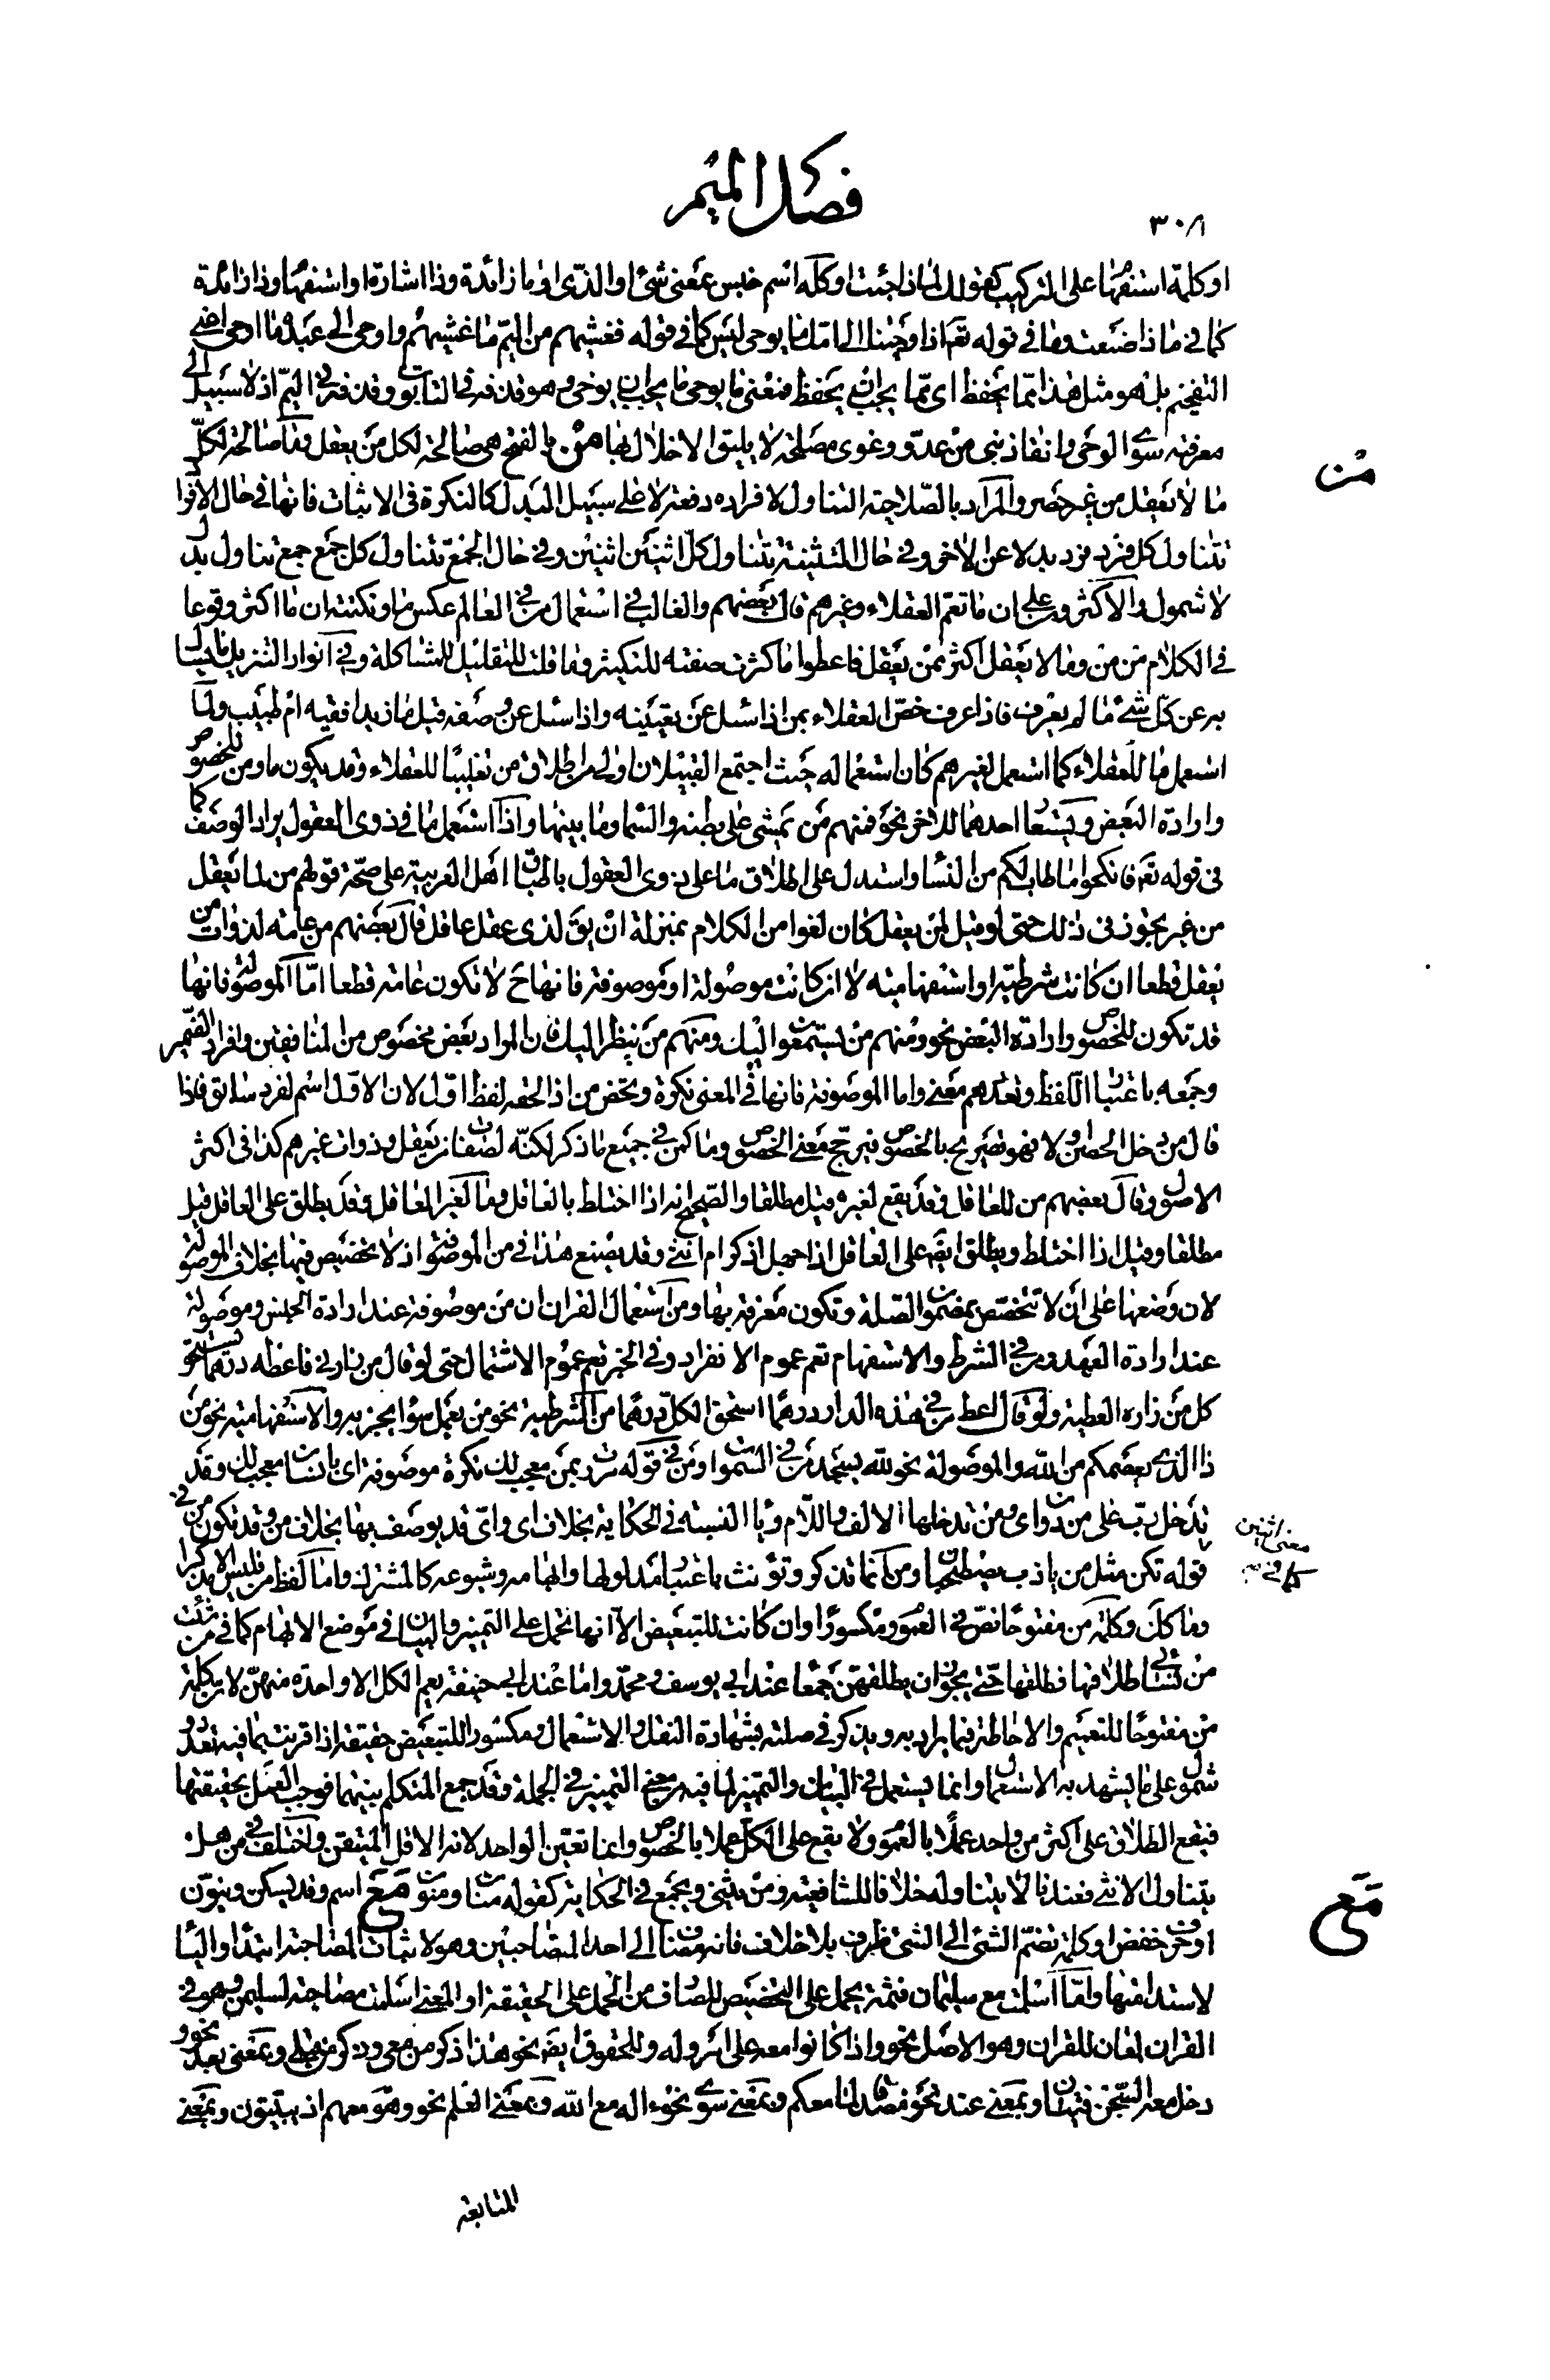 فصل الميم
٣٠٨
او كلمة استفهاما على التركيب كقولك لماذا جئت او كله اسم جنس بمعنى شئ او الذى او ما زائدة وذا اشارة او استفهاما وذا زائدة
كما فى ماذا صنعت وما فى قوله تعه اذ اوحينا الى امك ما يوحى ليس كما فى قوله فغشيهم من اليم ما غشيهم واوحى الى عبده ما اوحى اعنى
التفخيم بل هو مثل هذا مما يحفظ اى مما يجب ان يحفظ فمعنى ما يوحى ما يجب ان يوحى وهو قذفه فى التابوت وقذفه فى اليم اذ لا سبيل الى
معرفته سوى الوحى وانقاذ نبى من عدو وغوى مصلحة لا يليق الاخلال بها من بالفتح هى صالحة لكل من يعقل وما صالحة لكل
ما لا يعقل من غير حصر والمراد بالصلاحية التناول لافراده دفعة لا على سبيل البدل كالنكرة فى الاثبات فانها فى حال الافراد
تتناول كل فرد فرد بدلا عن الاخر وفى حال التثنية تتناول كل اثنين اثنين وفى حال الجمع تتناول كل جمع جمع تناول بدل
لا شمول والاكثرون على ان ما تعم العقلاء وغيرهم قال بعضهم والغالب فى استعمال من فى العالم عكس ما ونكتته ان ما اكثر وقوعا
فى الكلام من من وما لا يعقل اكثر ممن يعقل فاعطوا ما كثرت صفته للتكثير وما قلت للتقليل للمشاكلة وفى انوار التنزيل ما يسال
به عن كل شئ ما لم يعرف فاذا عرف خص العقلاء بمن اذا سئل عن تعيينه واذا سئل عن وصفه قيل ما زيد افقيه ام طبيب ولما
استعمل ما للعقلاء كما استعمل لغيرهم كان استعماله حيث اجتمع القبيلان اولى من اطلاق من تغليبا للعقلاء وقد يكون ما ومن للخصوص
وارادة البعض ويستعار احدهما للاخر نحو فمنهم من يمشى على بطنه والسماء وما بينها واذا استعمل ما فى ذوى العقول يراد الوصف كما
فى قوله تعه فانكحوا ما طاب لكم من النساء واستدل على اطلاق ما على ذوى العقول باطباق اهل العربية على صحة قولهم من لما يعقل
من غير تجوز فى ذلك حتى لو قيل لمن يعقل كان لغوا من الكلام بمنزلة ان يق لذى عقل عاقل قال بعضهم من عامة لذوات من
يعقل قطعا ان كانت شرطية او استفهامية لا ان كانت موصولة او موصوفة فانها ح لا تكون عامة قطعا اما الموصولة فانها
قد تكون للخصوص وارادة البعض نحو ومنهم من يستمعون اليك ومنهم من ينظر اليك فان المراد بعض مخصوص من المنافقين وافراد الضمير
وجمعه باعتبار اللفظ وتعددهم معنى واما الموصوفة فانها فى المعنى نكرة وتخص من اذ الحقه لفظ اول لان الاول اسم لفرد سابق فاذا
قال من دخل الحصن اولا فهو تصريح بالخصوص فيرجح معنى الخصوص وما كمن فى جميع ما ذكر لكنه لصفات من يعقل وذوات غيرهم كذا فى اكثر
الاصول وقال بعضهم من للعاقل وقد يقع لغيره قيل مطلقا والصحيح انه اذا اختلط بالعاقل وما لغير العاقل وقد يطلق على العاقل قيل
مطلقا وقيل اذا اختلط ويطلق ايضه على العاقل اذا جهل اذكر ام انثى وقد يصنع هذا فى من الموصوفة اذ لا تخصيص فيها بخلاف الموصولة
لان وضعها على ان لا تتخصص بمضمون الصلة وتكون معرفة بها ومن استعمال القران ان من موصوفة عند ارادة الجنس وموصولة
عند ارادة العهد ومن فى الشرط والاستفهام تعم عموم الانفراد وفى الخبر تعم عموم الاشتمال حتى لو قال من زارنى فاعطه درهما يستحق
كل من زاره العطية ولو قال اعط من فى هذه الدار درهما استحق الكل درهما من الشرطية نحو من يعمل سوءا يجز به والاستفهامية نحو من
ذا الذى يعصمكم من الله والموصولة نحو لله يسجد من فى السموات ومن فى قوله مررت بمن معجب لك نكرة موصوفة اى بانسان معجب لك وقد
تدخل رب على من دون اى ومن تدخلها الالف واللام ويا النسبة فى الحكاية بخلاف اى واى قد يوصف بها بخلاف من وقد تكون من فى
قوله تكن مثل من ياذئب يصطحبان ومن كما تذكر وتؤنث باعتبار مدلولها وابهامه وشيوعه كالمشترك واما لفظ من فليس الا مذكرا
وما كل وكلمة من مفتوحا نص فى العموم ومكسورا وان كانت للتبعيض الا انها تحمل على التمييز والبيان فى موضع الابهام كما فى من شئت
من نسائى طلاقها فطلقها حتى يجوز ان يطلقهن جمعا عند ابى يوسف ومحمد واما عند ابى حنيفة يعم الكل الا واحدة منهن لان كلمة
من مفتوحا للتعميم والاحاطة فيما يراد به ويذكر فى صلته بشهادة النقل والاستعمال ومكسورا للتبعيض حقيقة اذا قرنت بما فيه تعدد و
شمول على ما يشهد به الاستعمال وانما يستعمل فى البيان والتمييز لما فيه معنى التمييز فى الجملة وقد جمع المتكلم بينهما فوجب العمل بحقيقتهما
فيقع الطلاق على اكثر من واحد عملا بالعموم ولا يقع على الكل عملا بالخصوص وانما تعين الواحد لانه الاقل المتيقن واختلف فى من هل
يتناول الانثى فعندنا لا يتناوله خلافا للشافعية ومن يثنى ويجمع فى الحكاية كقوله منان ومنون مع اسم وقد يسكن وينون
او حرف خفض او كلمة تضم الشئ الى الشئ ظرف بلا خلاف فانه مضاف الى احد المتصاحبين وهو لاثبات المصاحبة ابتداء والباء
لاستدامتها واما اسلمت مع سليمان فثمة يحمل على التخصيص للصارف من الحمل على الحقيقة او المعنى اسلمت مصاحبة لسليمن وهو فى
القران لمعان للقران وهو الاصل نحو واذا كانوا معه على امر وله وللحقوق ايضه نحو هذا ذكر من معى وذكر من قبلى وبمعنى بعد نحو و
دخل معه السجن فتيان وبمعنى عند نحو مصدقا لما معكم وبمعنى سوى نحو ءاله مع الله وبمعنى العلم نحو وهو معهم اذ يبيتون وبمعنى
المتابعة
من
معنى اثنين
كما فى
مع